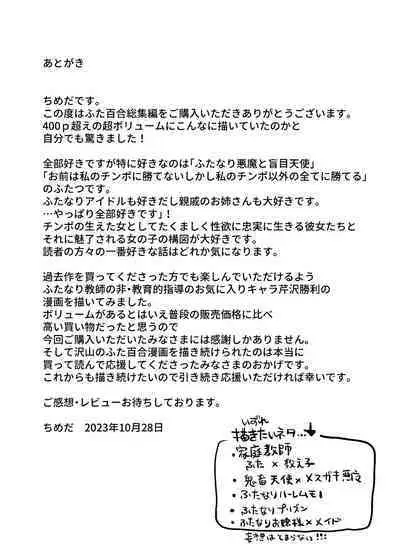 あとがき
ちめだです。
この度はふた百合総集編をご購入いただきありがとうございます。
400p超えの超ボリュームにこんなに描いていたのかと
自分でも驚きました！
全部好きですが特に好きなのは「ふたなり悪魔と盲目天使」
「お前は私のチンポに勝てないしかし私のチンポ以外の全てに勝てる」
のふたつです。
ふたなりアイドルも好きだし親戚のお姉さんも大好きです。
…やっぱり全部好きです」！
チンポの生えた女としてたくましく性欲に忠実に生きる彼女たちと
それに魅了される女の子の構図が大好きです。
読者の方々の一番好きな話はどれか気になります。
過去作を買ってくださった方でも楽しんでいただけるよう
ふたなり教師の非・教育的指導のお気に入りキャラ芹沢勝利の
漫画を描いてみました。
ボリュームがあるとはいえ普段の販売価格に比べ
高い買い物だったと思うので
今回ご購入いただいたみなさまには感謝しかありません。
そして沢山のふた百合漫画を描き続けられたのは本当に
買って読んで応援してくださったみなさまのおかげです。
これからも描き続けたいので引き続き応援いただければ幸いです。
ご感想・レビューお待ちしております。
ちめだ　2023年10月28日
いずれ
描きたいネタ…↓
・家庭教師
ふた×教え子
・鬼畜天使×メスガキ悪魔
・ふたなりハーレムモノ
・ふたなりプリズン
・ふたなりお嬢様×メイド
妄想はとまらない!!!